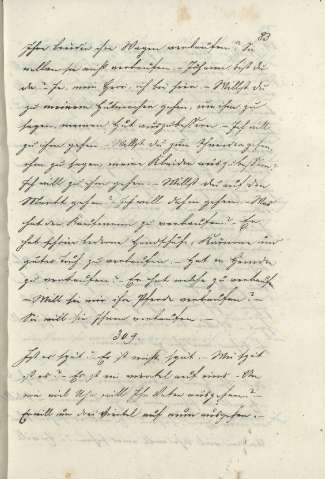 83
ihre beiden ihre Wagen verkaufen? Sie
wollen sie nicht verkaufen. – Johann bist du
da? – Ja, mein Herr, ich bin hier – Willst du
zu meinem Hutmacher gehen, um ihm zu
sagen, meinen Hut auszubessern – Ich will
zu ihm gehen – Willst du zum Schneider gehen,
ihm zu sagen, meine Kleider auszubessern,
Ich will zu ihm gehen – Willst du auf den
Markt gehen? Ich will dahin gehen – Was
hat der Kaufmann zu verkaufen? – Er
hat schöne lederne Handschuhe, Kämme und
gutes Tuch zu verkaufen – Hat er Hemde
zu verkaufen? – Er hat welche zu verkaufen
– Will er mir ihre Pferde verkaufen?
Er will sie Ihnen verkaufen –
309
Ist es spät? – Es ist nicht spät – Wie spät
ist es? – Es ist ein viertel auf eins – Um
wie viel Uhr will Ihr Vater ausgehen? –
Er will um drei Viertel auf neun ausgehen. –